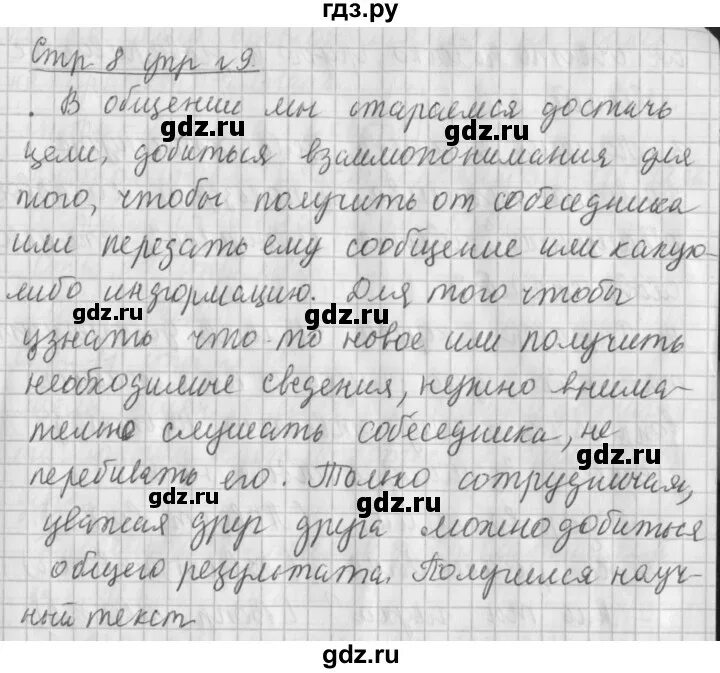 гдз.ру
Стр 8 упр 29.
. В общении мы стараемся достачь
gdz.ru gdz.ru
цели, добиться взаимопонимания для
того, чтобы получить от собеседника
или передать ему сообщение или какую-
либо информацию. Для того чтобы
gdz.ru gdz.ru
узнать что-то новое или получить
необходимые сведения, нужно внима-
тельно слушать собеседника, не
gdz.ru
перебивать его. Только сотрудничая,
gdz.ru gdz.ru
уважая друг друга можно добиться
общего результата. Получился науч-
ный текст
gdz.ru